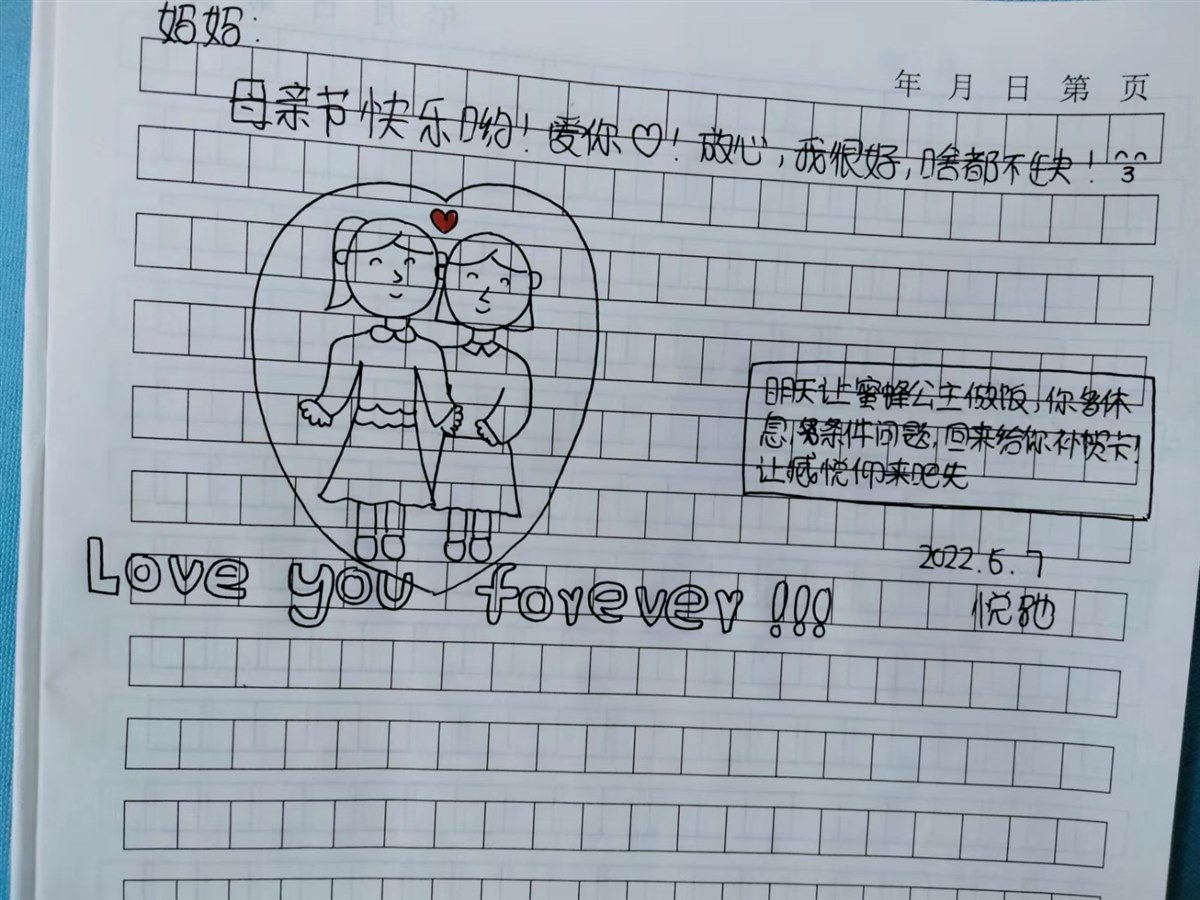 妈妈:
年 月 日 第 页
母亲节快乐哟!爱你♡!放心,我很好,啥都不缺!
明天让蜜蜂公主做饭,你多休
息,条件问题,回来给你补贺卡!
让感悦仰来吧先
2022.5.7
Love you forever!!!
悦驰